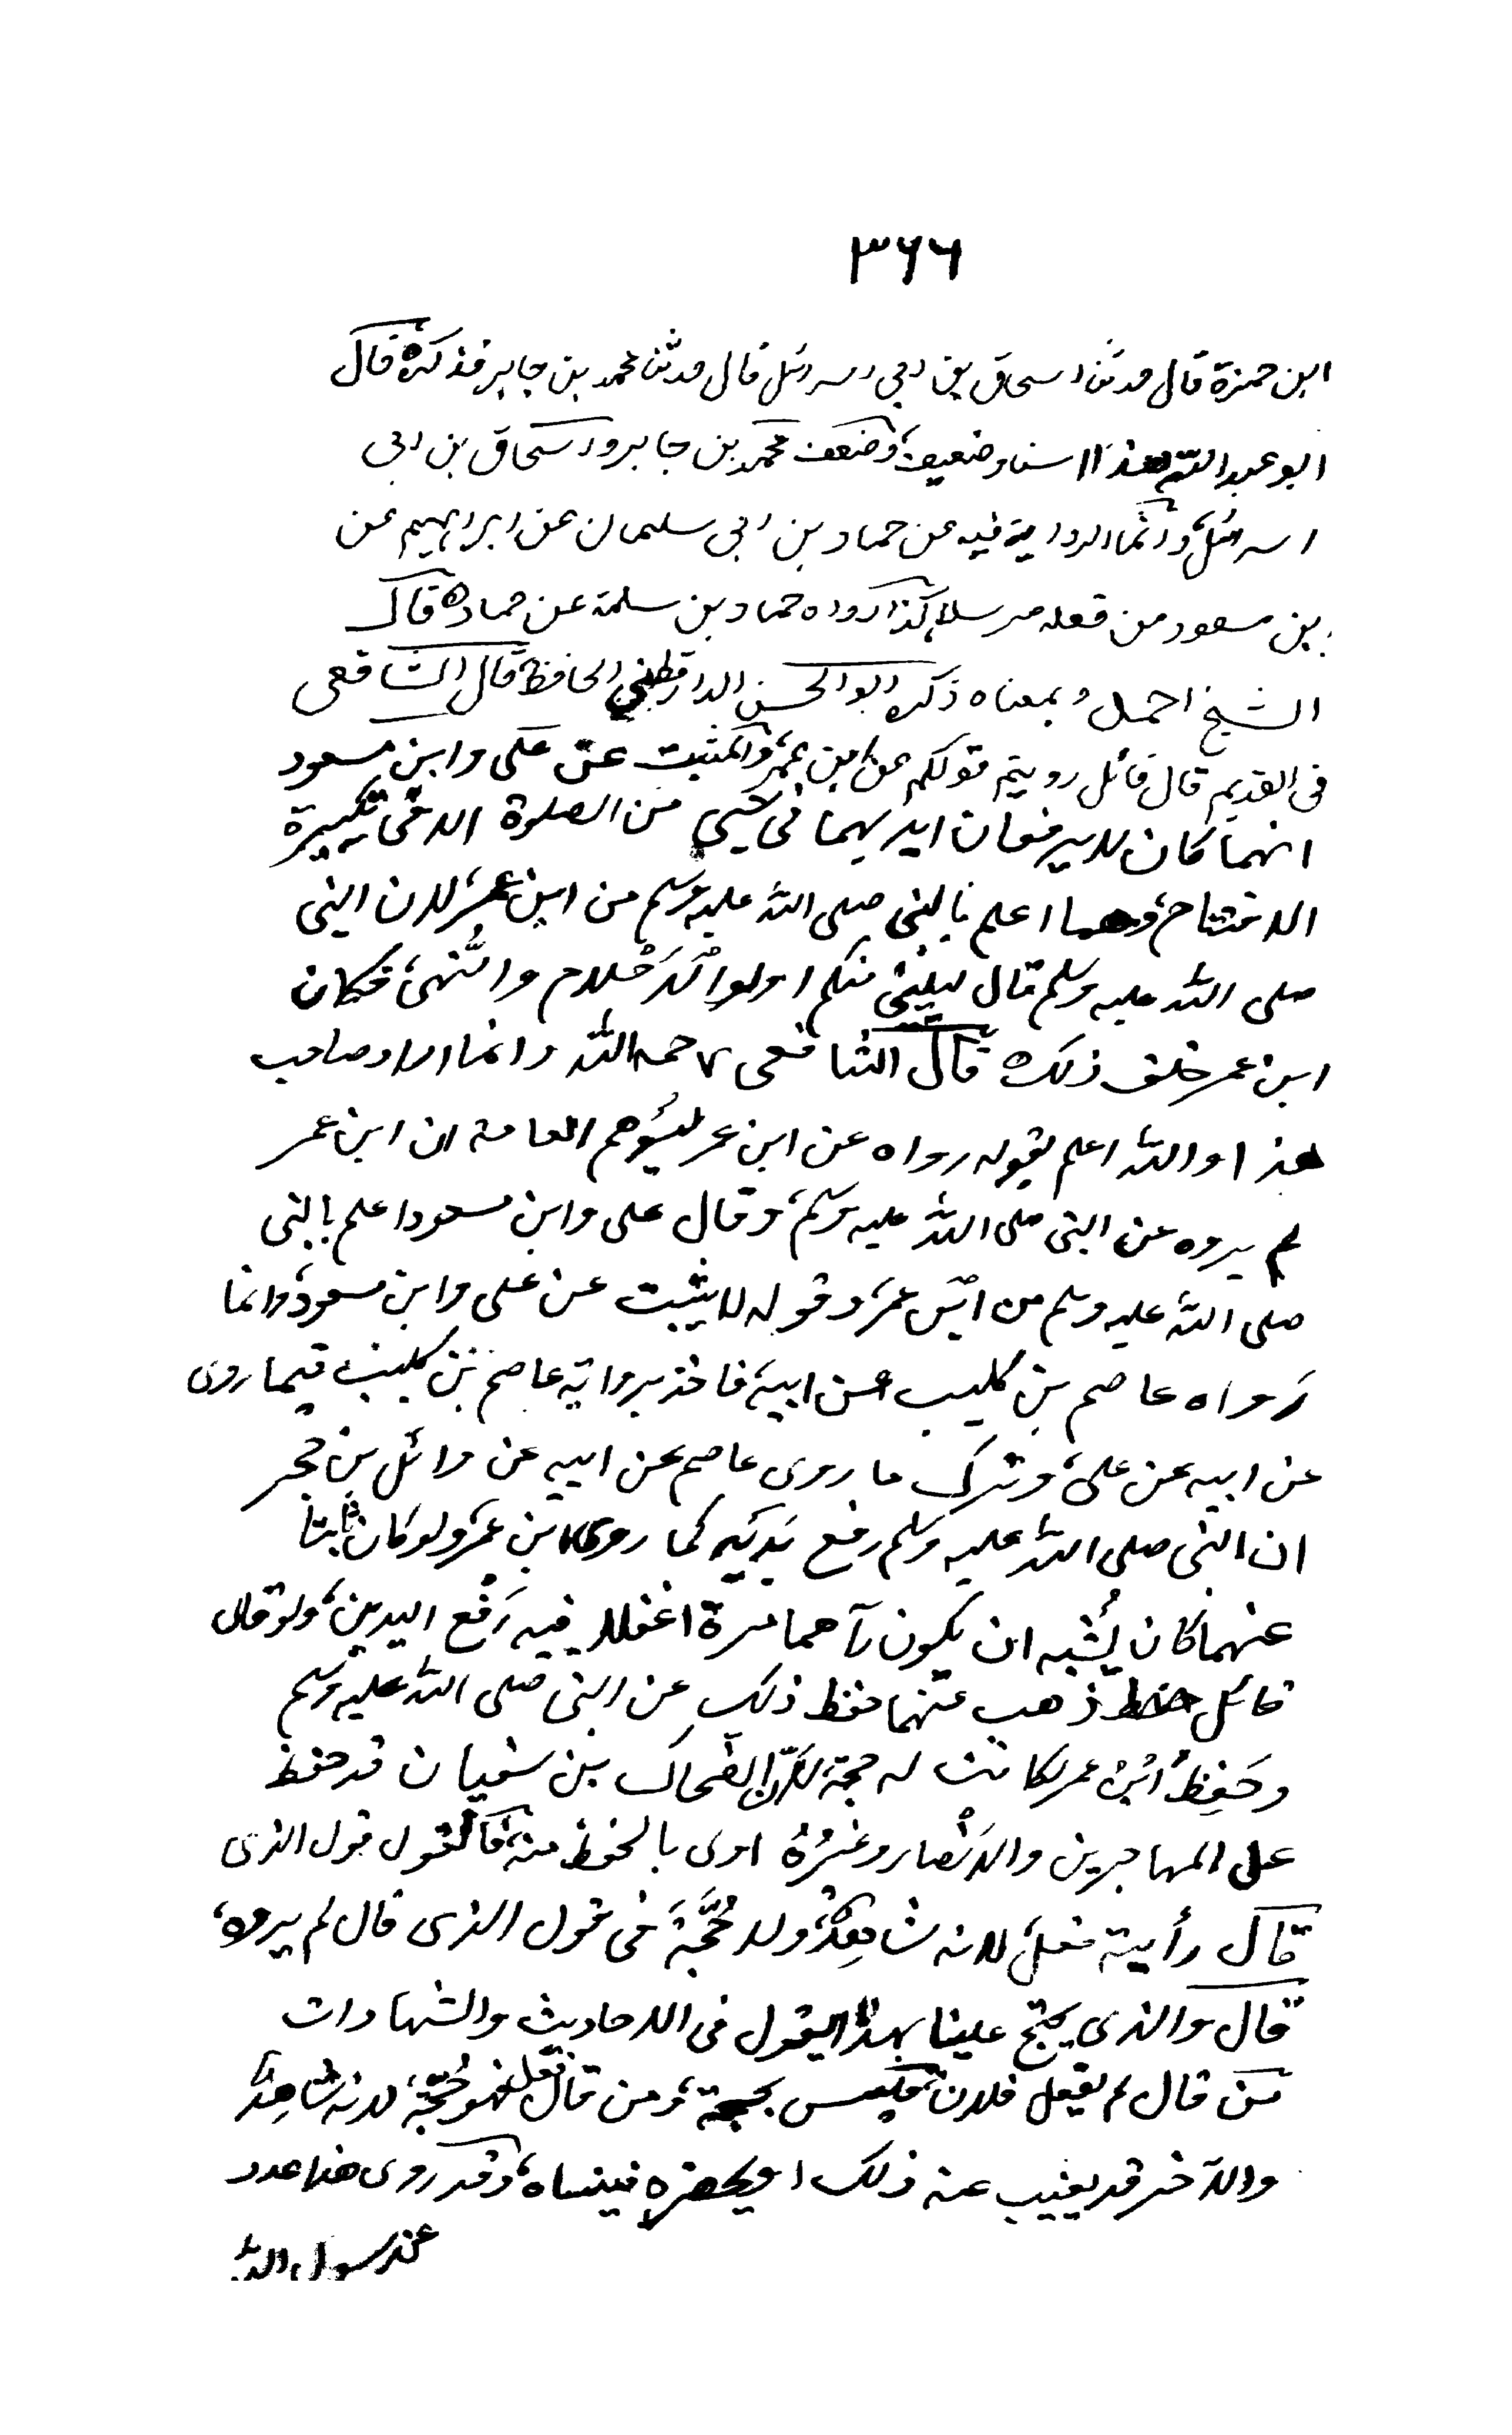 ٣٦٦
ابن حمزة قال حدثنا اسحاق بن ابى اسرائل قال حدثنا محمد بن جابر فذكره قال
ابو عبد الله هذا اسناد ضعيف، وضعف محمد بن جابر واسحاق بن ابى
اسرائل، وانما الرواية فيه عن حماد بن ابى سليمان عن ابراهيم عن
بن مسعود من فعله مرسلا، كذا رواه حماد بن سلمة عن حماده قال
الشيخ احمد وبمعناه ذكره ابو الحسن الدارقطني الحافظ، قال الشافعى
فى القديم قال قائل رويتم قولكم عن ابن عمر، والمثبت عن على وابن مسعود
انهما كان لا يرفعان ايديهما فى شيئ من الصلوة الا فى تكبيرة
الافتتاح، وهما اعلم بالنبى صلى الله عليه وسلم من ابن عمر، لان النبى
صلى الله عليه وسلم قال ليليني منكم اولوا الاحلام والنهى، فكان
ابن عمر خلف ذلك ه قال الشافعى رحمه الله وانما اراد صاحب
هذا والله اعلم بقوله رواه عن ابن عمر ليُوهم العامة ان ابن عمر
لم يروه عن النبى صلى الله عليه وسلم، وقال على وابن مسعود اعلم بالنبى
صلى الله عليه وسلم من ابن عمر، وقوله لا يثبت عن على وابن مسعود، وانما
رواه عاصم بن كليب عن ابيه، فاخذ برواية عاصم بن كليب فيما روى
عن ابيه عن على، وترك ما روى عاصم عن ابيه عن وائل بن حجر
ان النبى صلى الله عليه وسلم رفع يَديَه كما روى ابن عمر، ولو كان ثابتا
عنهما كان يُشبه ان يكون رآهما مرة اغفلا فيه رَفع اليدين، ولو قال
قائل ذهب عنهما حفظ ذلك عن النبى صلى الله عليه وسلم
وحَفِظَ ابنُ عمر لكانت له حجة، لانّ الضحاك بن سفيان قد حفظ
على المهاجرين والانصار وغيرُهُ اولى بالحفظ منه، فالقول قول الذى
قال رأيته فعل، لانه شاهِدٌ، ولا حُجَّةَ فى قول الذى قال لم يره،
قال والذى يحتج علينا بهذا يقول فى الاحاديث والشهادات
مَن قال لم يفعل فلان، فليس بحجة، ومن قال فعل فهو حُجّة، لانه شاهِدٌ
والآخر قد يغيب عنه ذلك او يحضره فينساه، وقد روى هذا عدد
عن رسول الله